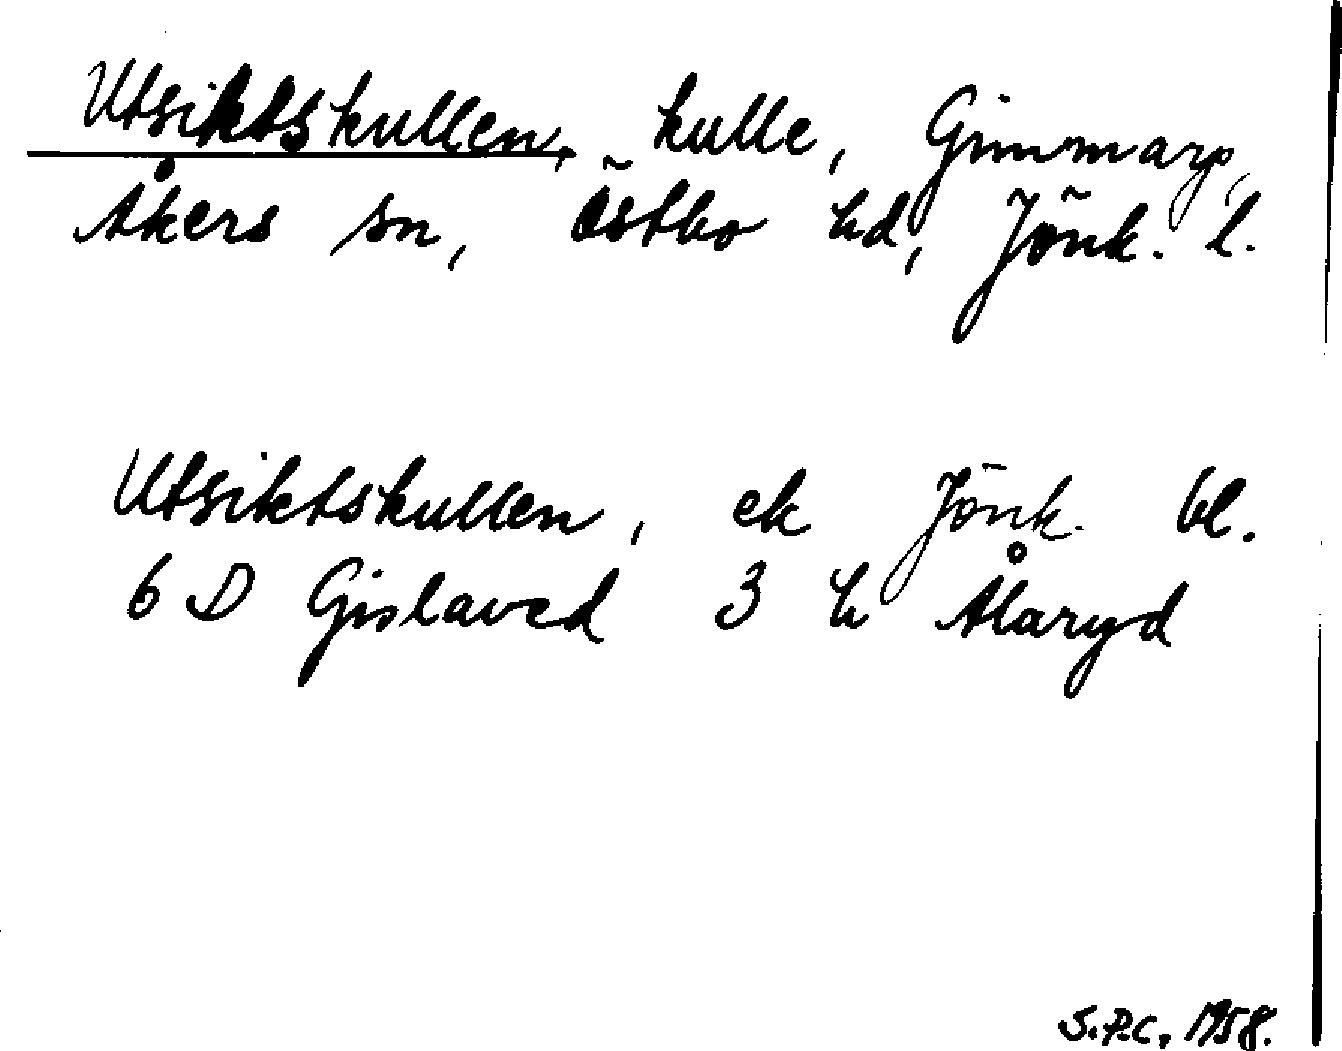 Utsiktskullen, kulle, Gimmarp,
Åkers sn, Östbo hd, Jönk. l.
Utsiktskullen, ek Jönk. bl.
6 D Gislaved 3 h Ålaryd
S.P.C. 1958.